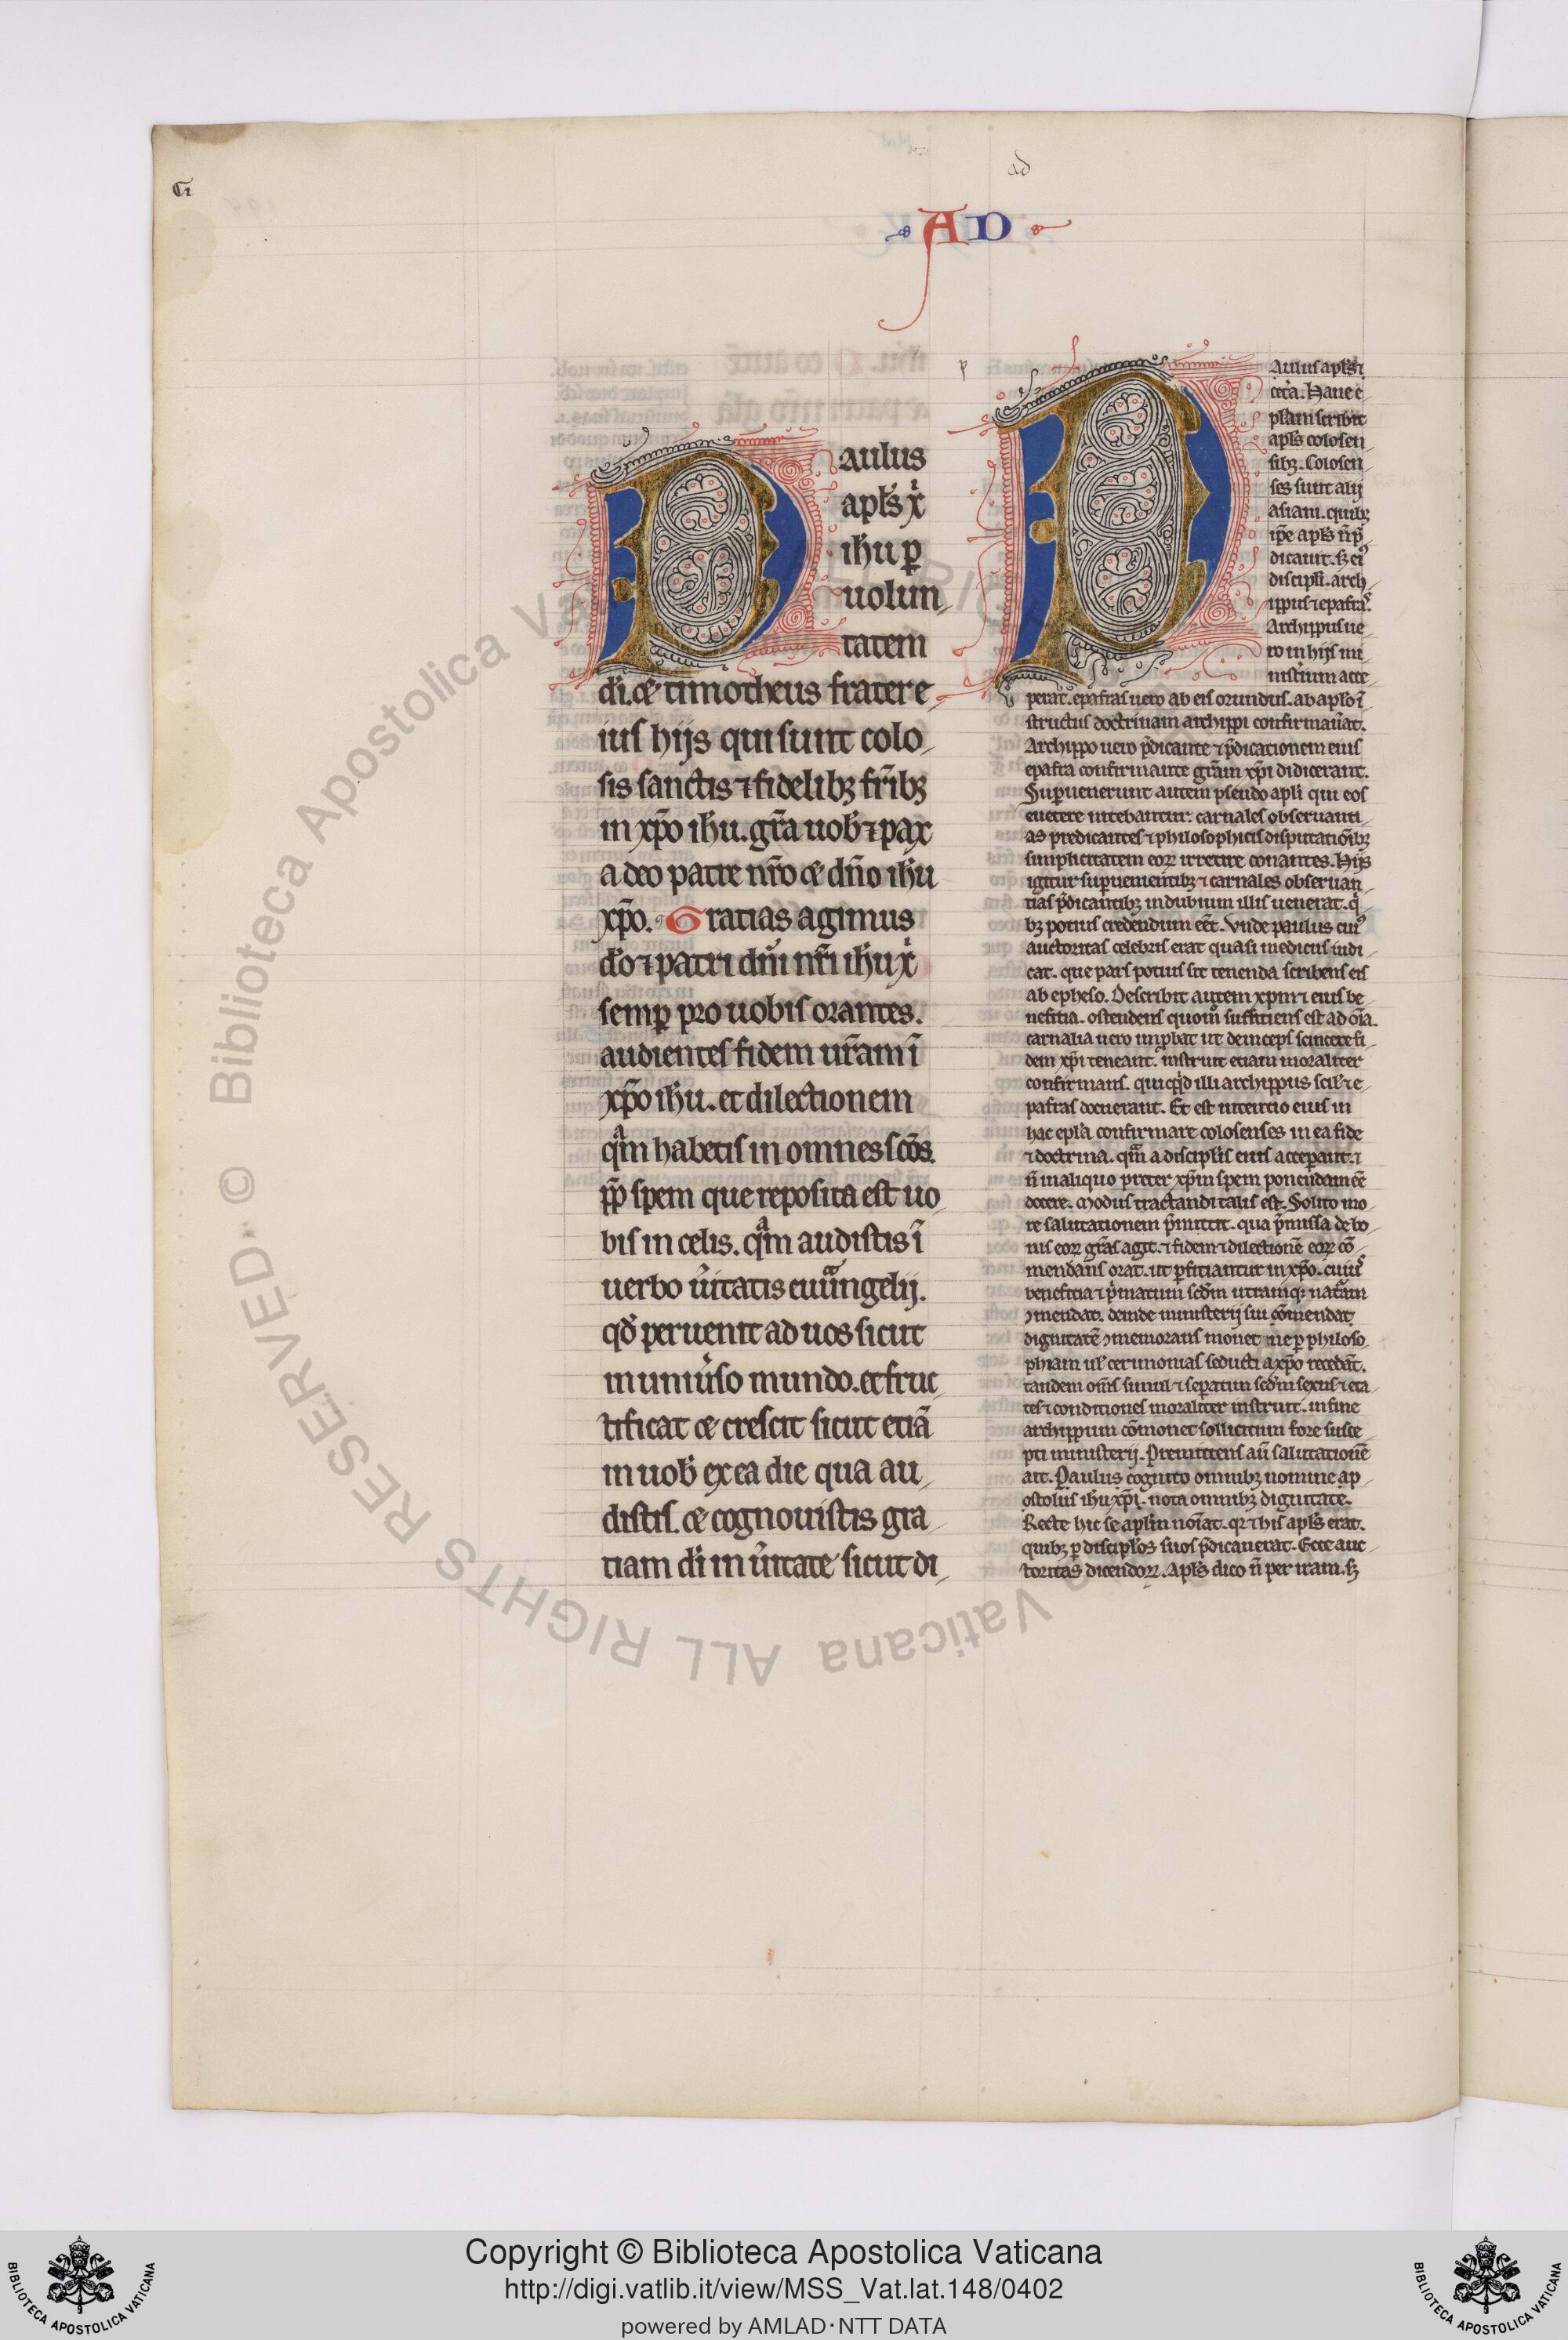 ad
AD
aulus
apl's xͥ
ih'u ꝑ
uolun
tatem
di. ⁊ timotheus frater e
ius hijs qui sunt colo
sis sanctis ⁊ fidelibꝫ fr̄ibꝫ
in xp̄o ih'u. gr̄a uob' ⁊ pax
a deo patre nr̄o ⁊ dn̄o ih'u
xp̄o. Gratias agimus
d'o ⁊ patri dn̄i nr̄i ih'u xͥ
semꝑ pro uobis orantes.
audientes fidem ur̄am ī
xp̄o ih'u. et dilectionem
qͣm habetis in omnes sc̄os.
ꝓp̄ spem que reposita est uo
bis in celis. qͣm audistis ī
uerbo ūitatis euuͣngelij.
qd̄ peruenit ad uos sicut
in uniūso mundo. et fruc
tificat ⁊ crescit sicut etiā
in uob' ex ea die qua au
distis. ⁊ cognouistis gra
tiam di in ūitate sicut di
p
Aulus apl's ⁊
cet̄a. Hanc e
pl'am scribit
apl's colosen
sibꝫ. Colosen
ses sunt alij
asiani. quibꝫ
ip̄e apl's n̄ p̄
dicauit. sꝫ ei᷒
discipl'i. arch
ippus ⁊ epafras.
Archippus ue
ro in hijs mi
nist̄ium acce
perat. epafras uero ab eis oriundus. ab apl'o ī
structus doctrinam archippi confirmau̅at.
Archippo uero p̄dicante ⁊ p̄dicationem eius
epafra confirmante gr̄am xp̄i didicerant.
Suꝑuenerunt autem pseudo apl'i qui eos
euertere nitebantur. carnales obseruanti
as predicantes ⁊ philosophicis disputatioībꝫ
simplicitatem eoꝝ irretire conantes. Hijs
igitur suꝑuenientibꝫ ⁊ carnales obseruan
tias p̄dicantibꝫ in dubium illis uenerat. qͥ
bꝫ potius credendum eēt. Vnde paulus cui᷒
auctoritas celebris erat quasi medicus indi
cat. que pars potius sit tenenda scribens eis
ab epheso. Describit autem xpm ⁊ eius be
neficia. ostendens quomͦ sufficiens est ad oīa.
carnalia uero inꝓbat ut deinceps scincere fi
dem xp̄i teneant. instruit etiam moraliter
confirmans. quicqͥd illi archippus scil' ⁊ e
pafras docuerant. Et est intentio eius in
hac epl'a confirmare colosenses in ea fide
⁊ doctrina. qͣm a discipl'is eius acceperant. ⁊
n̄ in aliquo preter xp̄m spem ponendam eē
docere. Modus tractandi talis est. Solito mo
re salutationem p̄mittit. qua p̄missa de bo
nis eoꝝ gr̄as agit. ⁊ fidem ⁊ dilectionē eoꝝ cō
mendans orat. ut ꝑficiantur in xp̄o. cuius
beneficia ⁊ p̄matum sed'm utramqꝫ nat̄am
ꝯmendat. deinde ministerij sui cōmendat
dignitatē ꝯmemorans monet ne ꝑ philoso
phiam ul' cerimonias seducti a xp̄o recedāt.
tandem om̄s simul ⁊ seꝑatim sed'm sexus ⁊ eta
tes ⁊ conditiones moraliter instruit. in fine
archippum cōmonet sollicitum fore susce
pti ministerij. Premittens aū salutationē
ait. Paulus cognito omnibꝫ nomine ap
ostolus ih'u xp̄i. nota omnibꝫ dignitate.
Recte hic se apl'm noīat. qꝛ ⁊ his apl's erat.
quibꝫ ꝑ discipl'os suos p̄dicauerat. Ecce auc
toritas dicendoꝝ. Apl's dico n̄ per iram. sꝫ
© Biblioteca Apostolica Vaticana ALL RIGHTS RESERVED
Copyright © Biblioteca Apostolica Vaticana
http://digi.vatlib.it/view/MSS_Vat.lat.148/0402
powered by AMLAD·NTT DATA
BIBLIOTECA APOSTOLICA VATICANA
BIBLIOTECA APOSTOLICA VATICANA